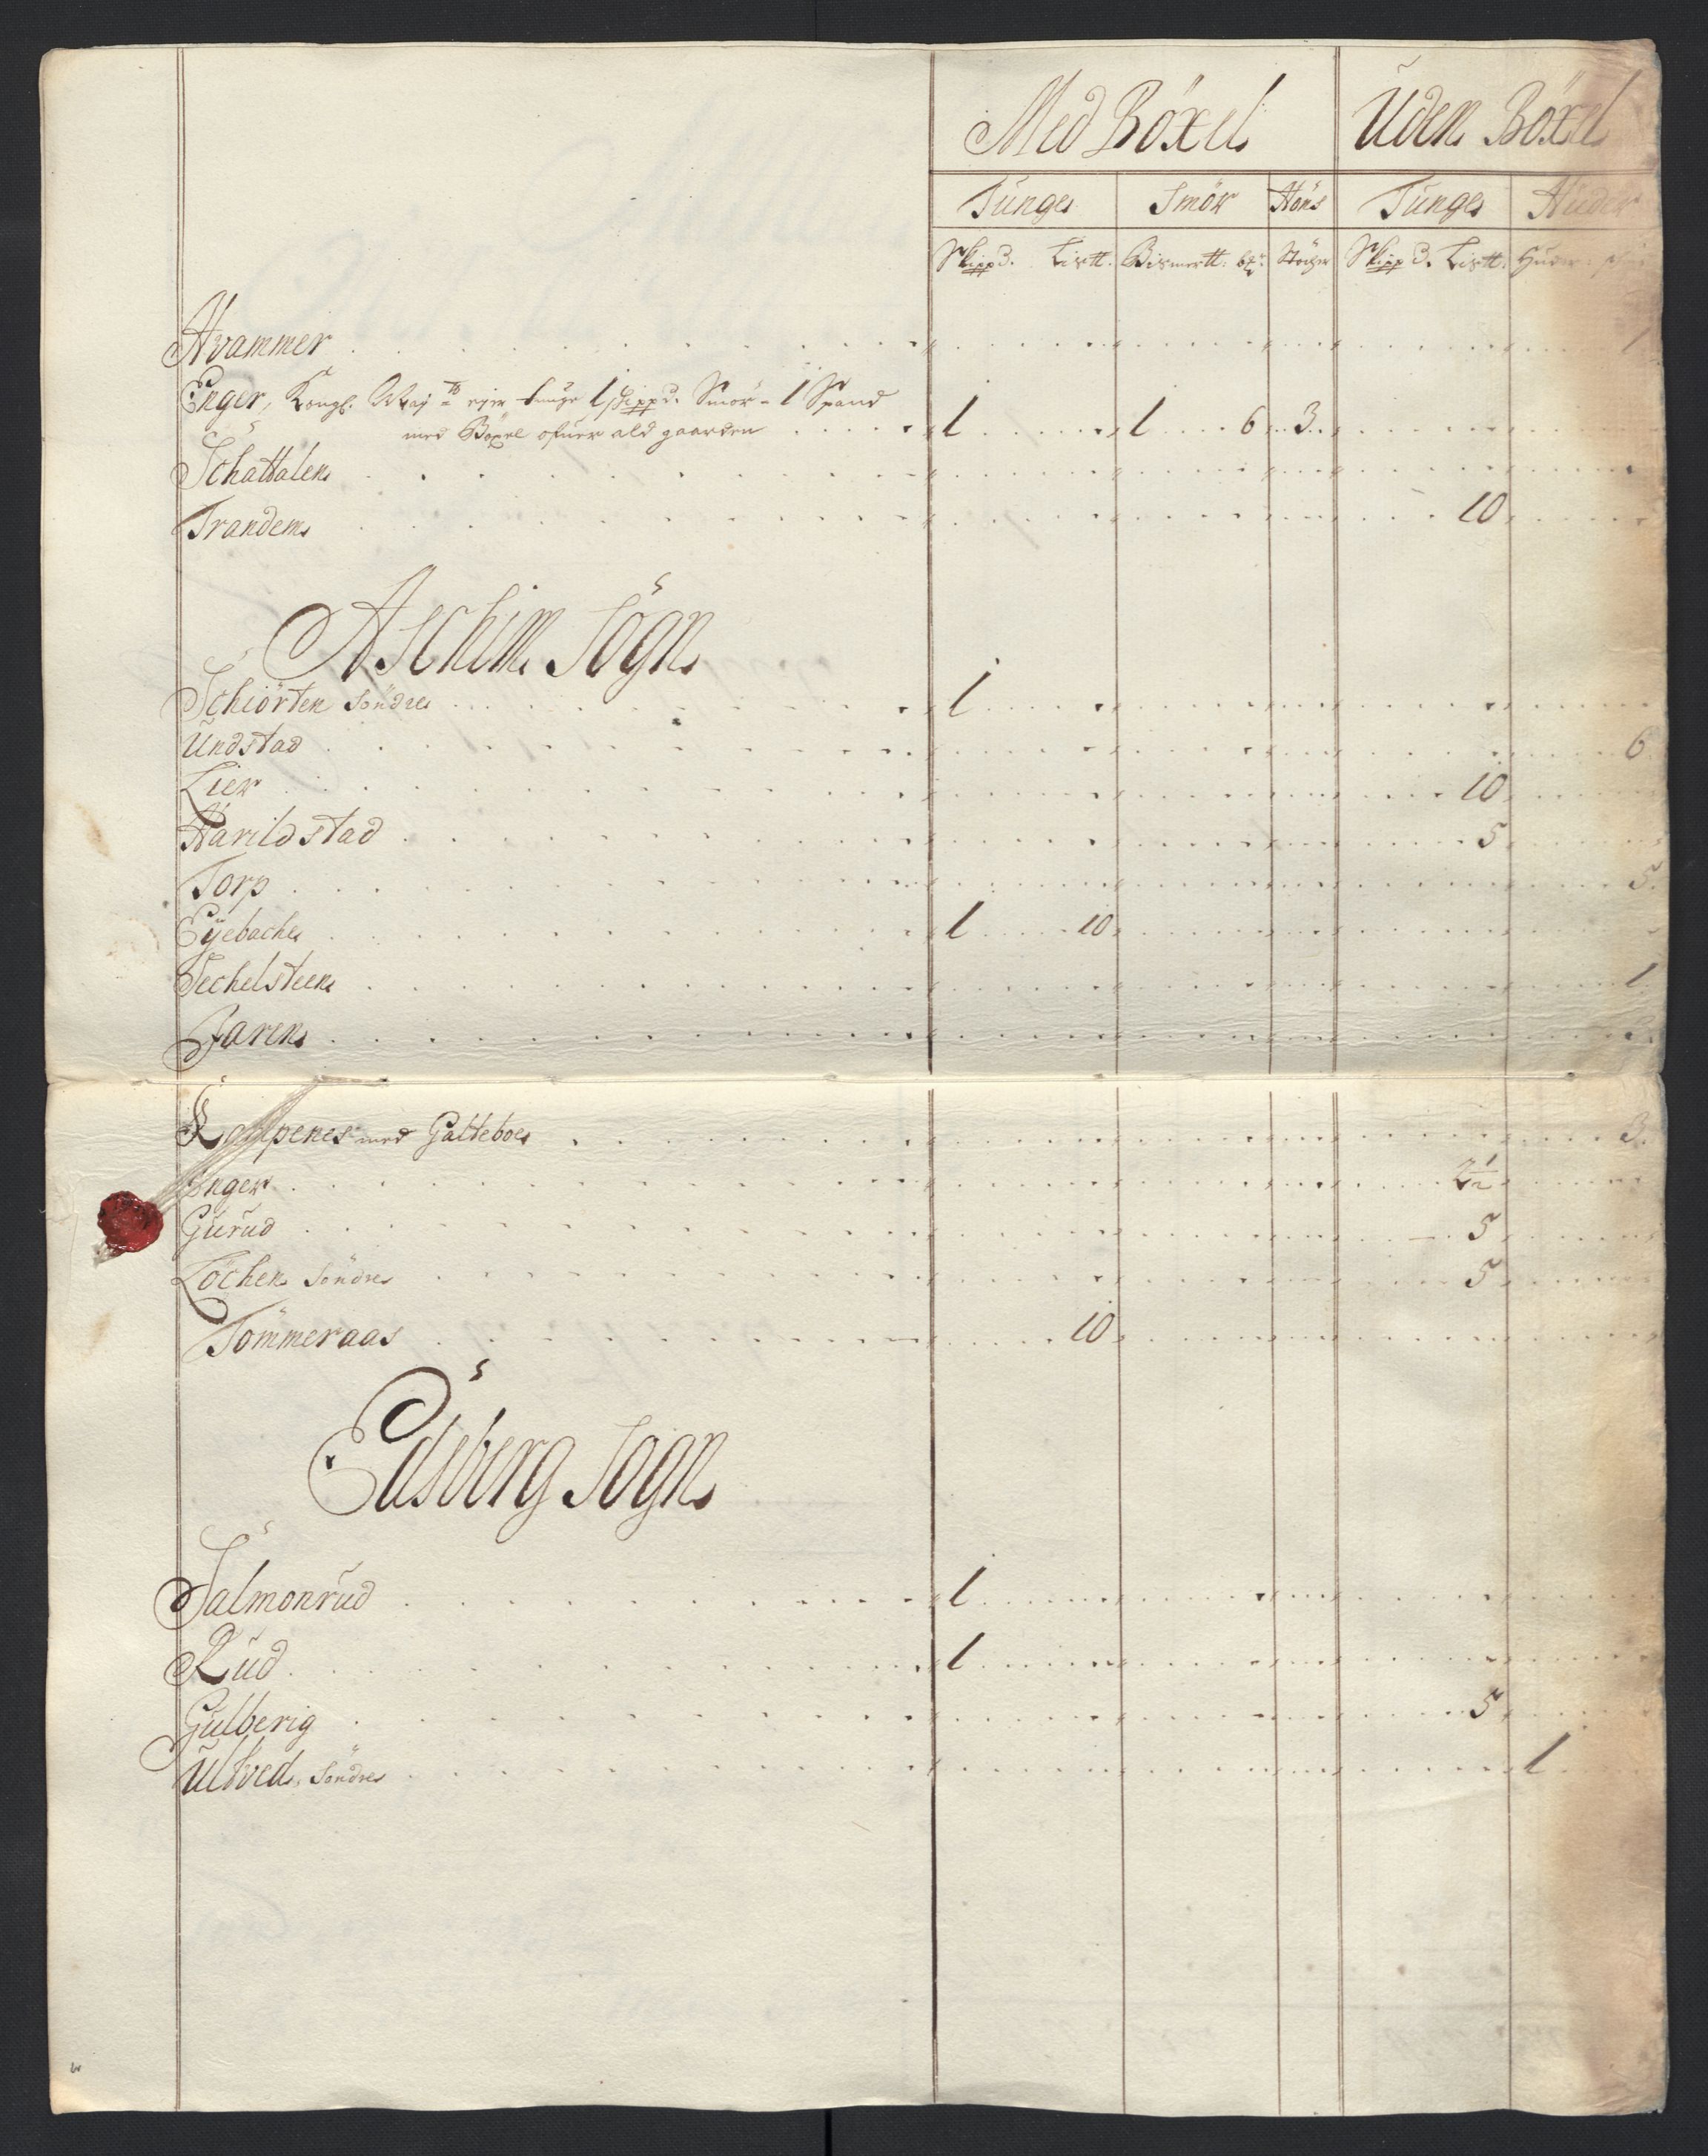 Med Böxel Uden Böxel
Tunge Smör Höns Tunge Huder
Skippd. Lis℔. Bismer℔. Stöcher Skippd. Lis℔. Huder
Hvammer 1
Enger, Kongl. May ejer tunge 1 skippd. Smör - 1 Spand
med Böxel ofuer ald gaarden 1 1 6 3
Schattalen
Trandem 10
Aschim Sogn
Schiörten Söndre 1
Undstad 6
Lier 10
Harildstad 5
Torp 5
Eÿebache 1 10
Techelsteen 1
Faren
Kolpenes med Galteboe 3
Enger 2½
Gurud 5
Löchen Söndre 5
Tömmeraas 10
Edsberg Sogn
Salmonrud 1
Rud 1
Gulberig 5
Ultved Söndre 1